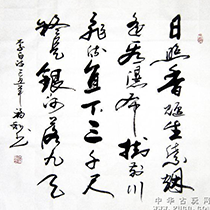 日照香爐生紫烟
遥看瀑布掛前川
飛流直下三千尺
疑是銀河落九天
李白诗
中华古玩网